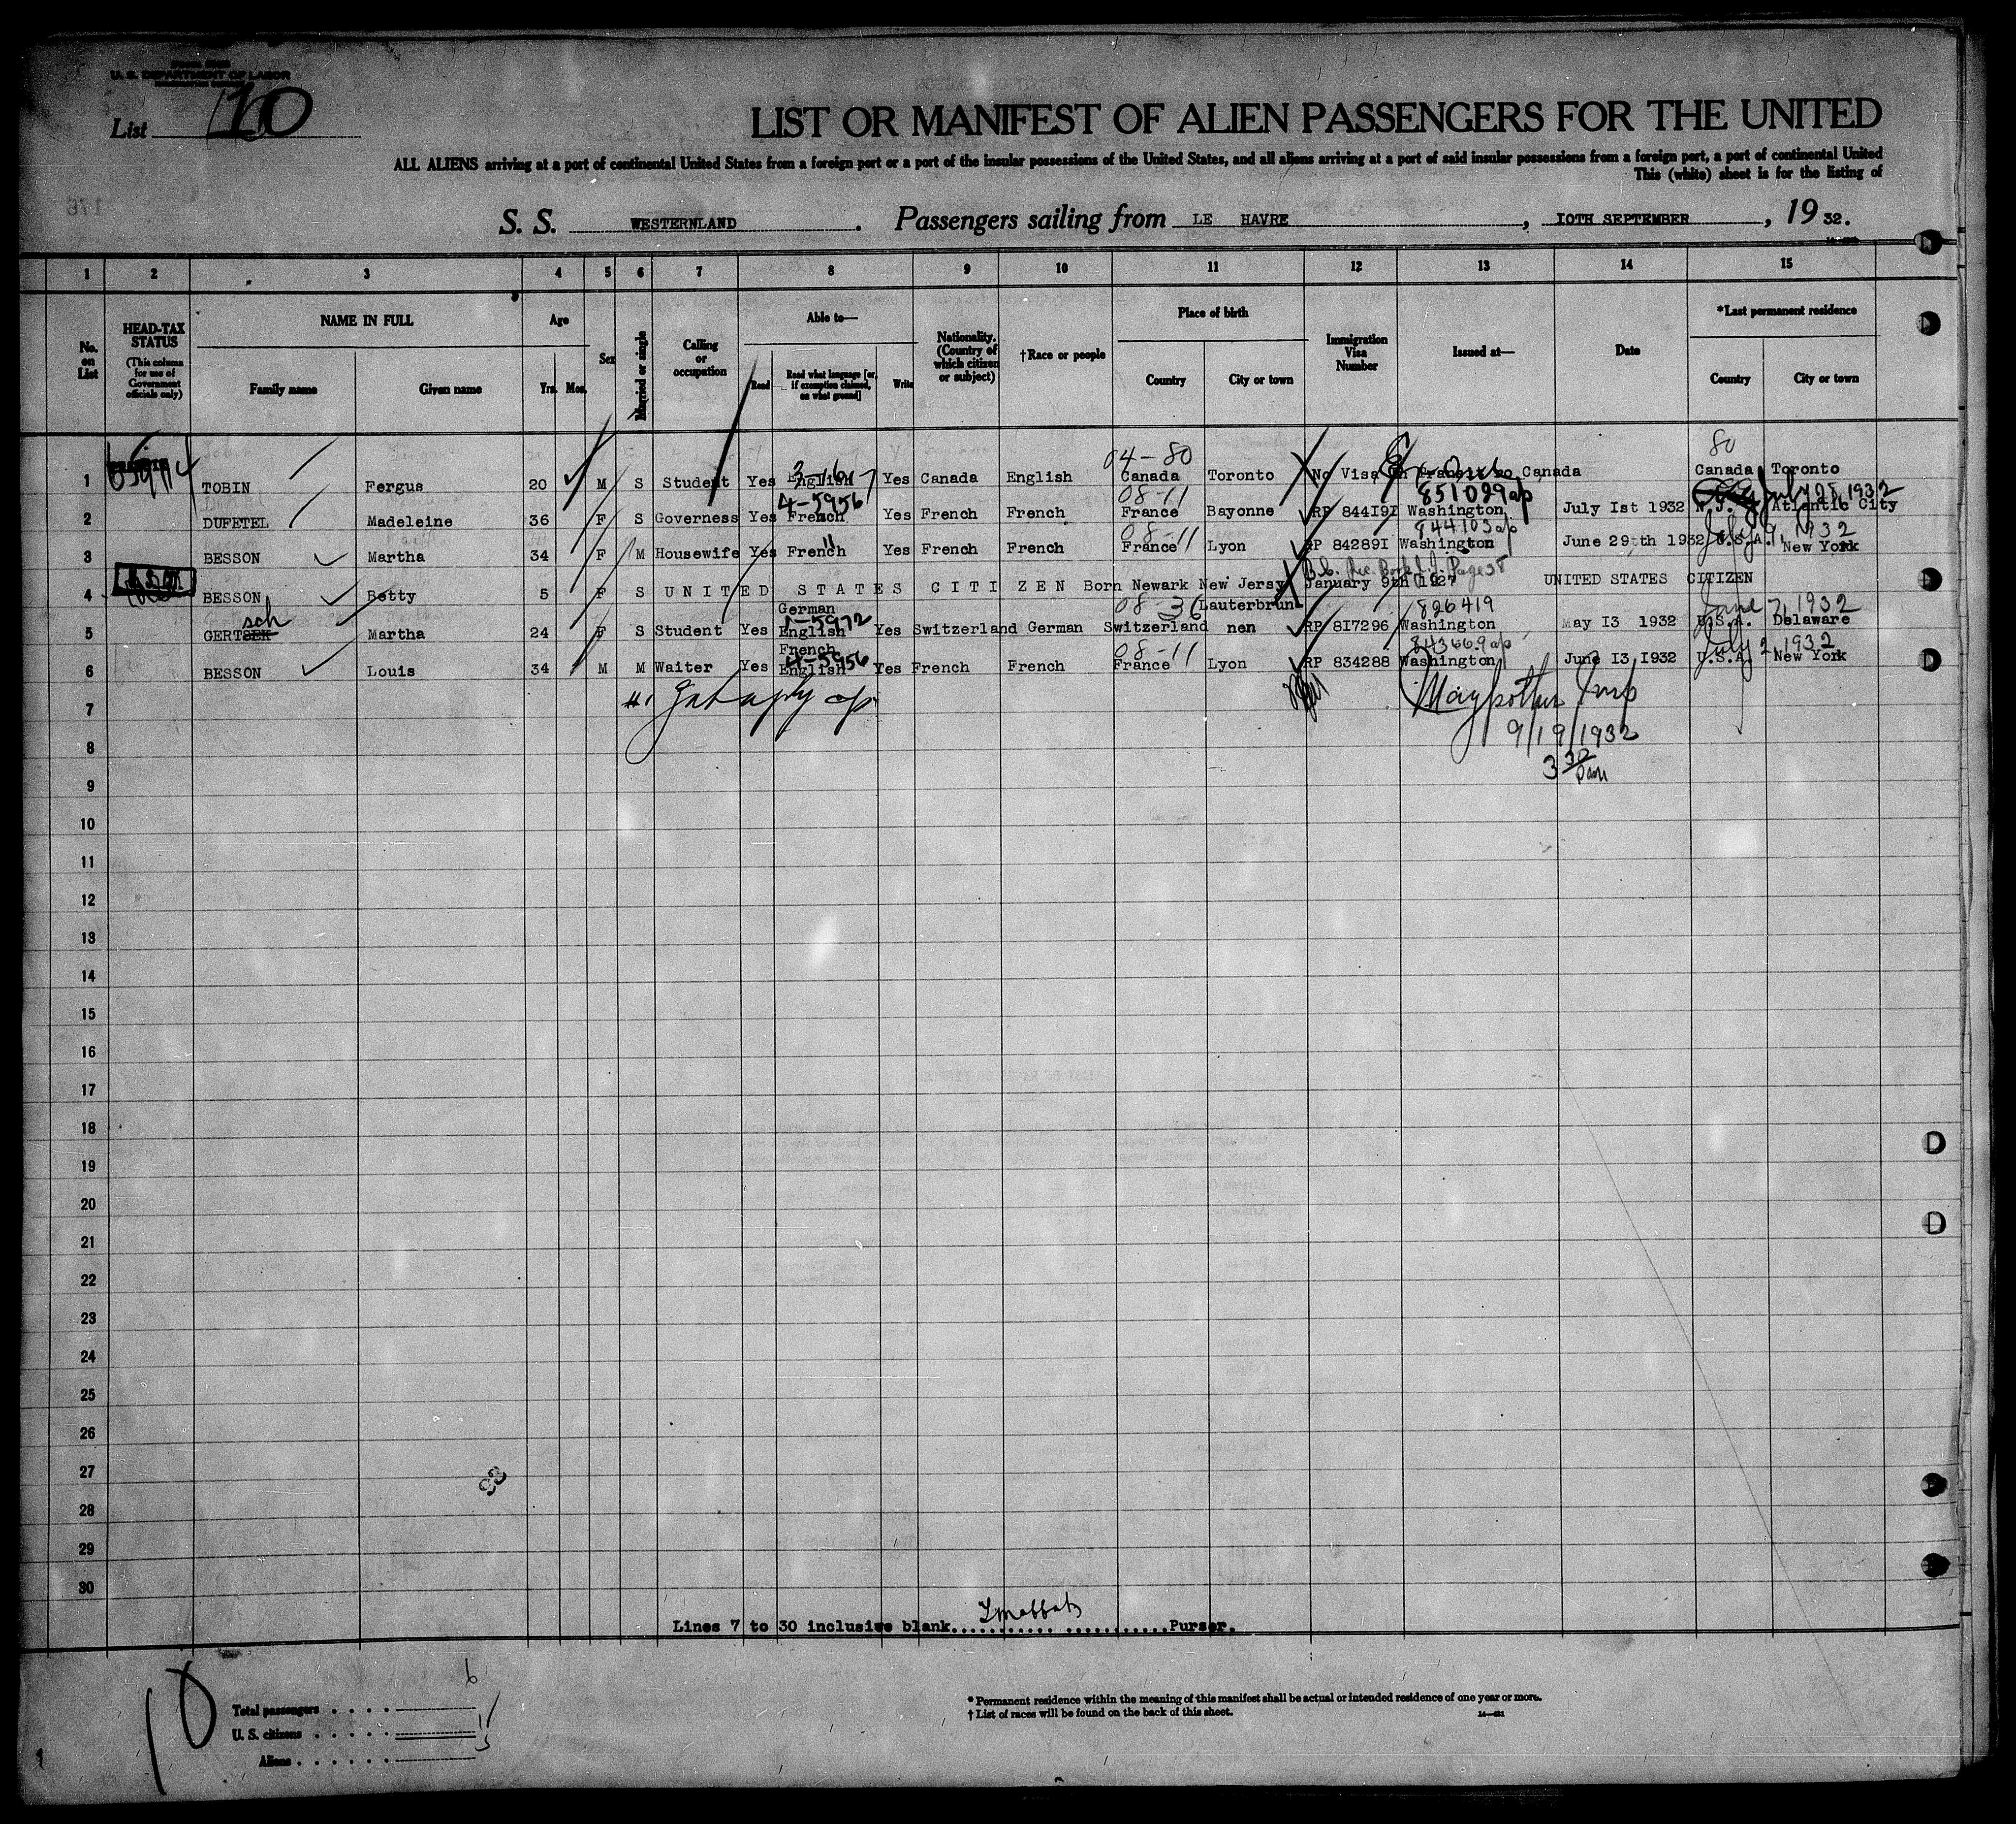 U. S. DEPARTMENT OF LABOR
List 10
LIST OR MANIFEST OF ALIEN PASSENGERS FOR THE UNITED
ALL ALIENS arriving at a port of continental United States from a foreign port or a port of the insular possessions of the United States, and all aliens arriving at a port of said insular possessions from a foreign port, a port of continental United
This (white) sheet is for the listing of
S. S. WESTERNLAND. Passengers sailing from LE HAVRE, IOTH SEPTEMBER, 19 32.
1 2 3 4 5 6 7 8 9 10 11 12 13 14 15
No. on List
HEAD-TAX STATUS (This column for use of Government officials only)
NAME IN FULL
Family name
Given name
Age
Yrs. Mos.
Sex
Married or single
Calling or occupation
Able to—
Read
Read what language [or, if exemption claimed, on what ground]
Write
Nationality. (Country of which citizen or subject)
†Race or people
Place of birth
Country
City or town
Immigration Visa Number
Issued at—
Date
*Last permanent residence
Country
City or town
04-80 80
1 TOBIN Fergus 20 M S Student Yes English Yes Canada English Canada Toronto No Visa Canada Canada Toronto
4-5956 08-11 851099 ap 1932
2 DUFETEL Madeleine 36 F S Governess Yes French Yes French French France Bayonne RP 844I9I Washington July Ist 1932 N.J. Atlantic City
11 08-11 844103 ap July 1932
3 BESSON Martha 34 F M Housewife Yes French Yes French French France Lyon RP 84289I Washington June 29th 1932 U.S.A. New York
4 BESSON Betty 5 F S UNITED STATES CITIZEN Born Newark New Jersy January 9th 1927 UNITED STATES CITIZEN
sch German 1-5972 08-36 Lauterbrun 826419 June 7, 1932
5 GERTSEK Martha 24 F S Student Yes English Yes Switzerland German Switzerland nen RP 8I7296 Washington May I3 1932 U.S.A. Delaware
French 4-5956 08-11 843669 ap July 2 1932
6 BESSON Louis 34 M M Waiter Yes English Yes French French France Lyon RP 834288 Washington June I3 I932 U.S.A. New York
7
8 9/19/1932
9 3 30
10
11
12
13
14
15
16
17
18
19
20
21
22
23
24
25
26
27
28
29
30
Lines 7 to 30 inclusive blank.......................Purser.
10
Total passengers . . . . 6
U. S. citizens . . . . . 1
Aliens . . . . . . 5
* Permanent residence within the meaning of this manifest shall be actual or intended residence of one year or more.
† List of races will be found on the back of this sheet.